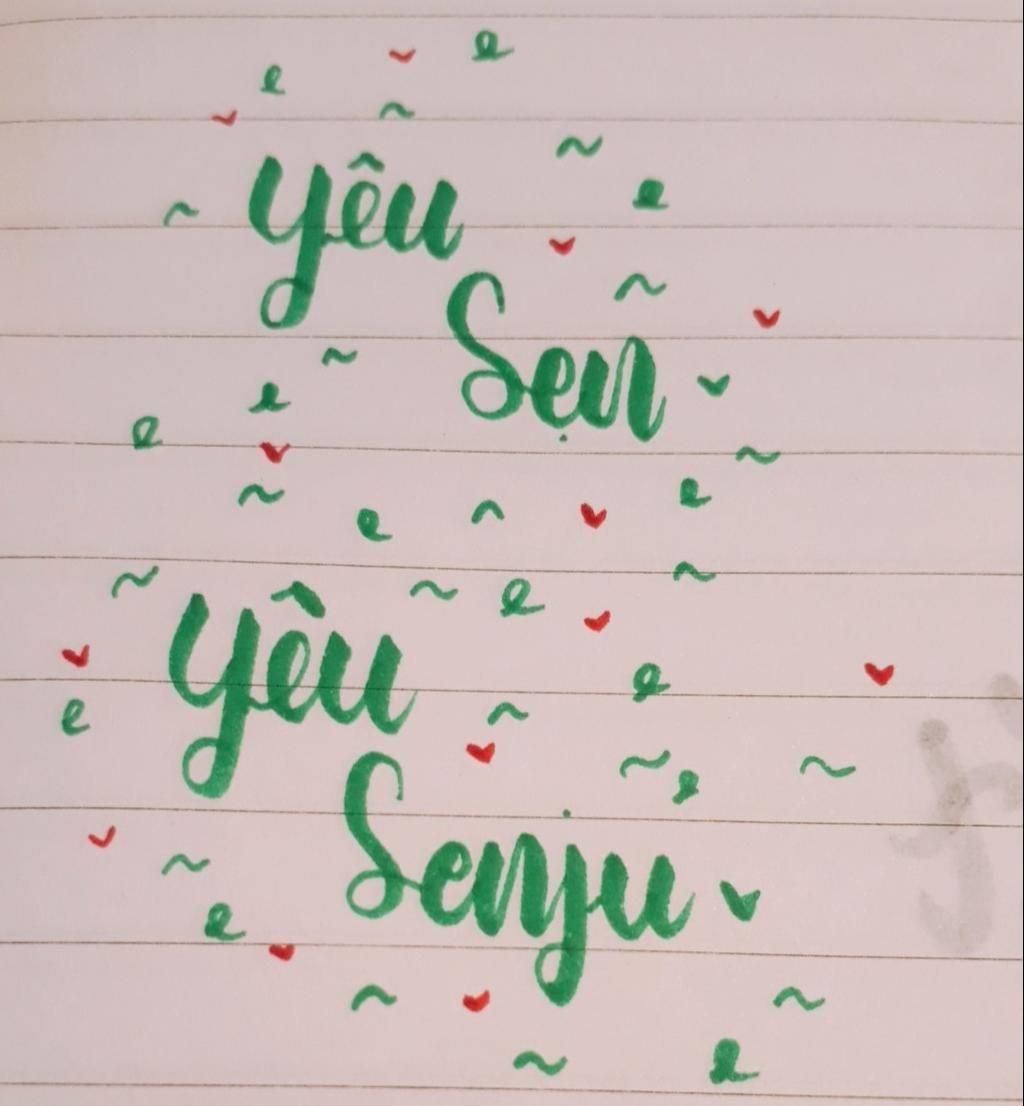 Yêu
Sẹn
Yêu
Senju